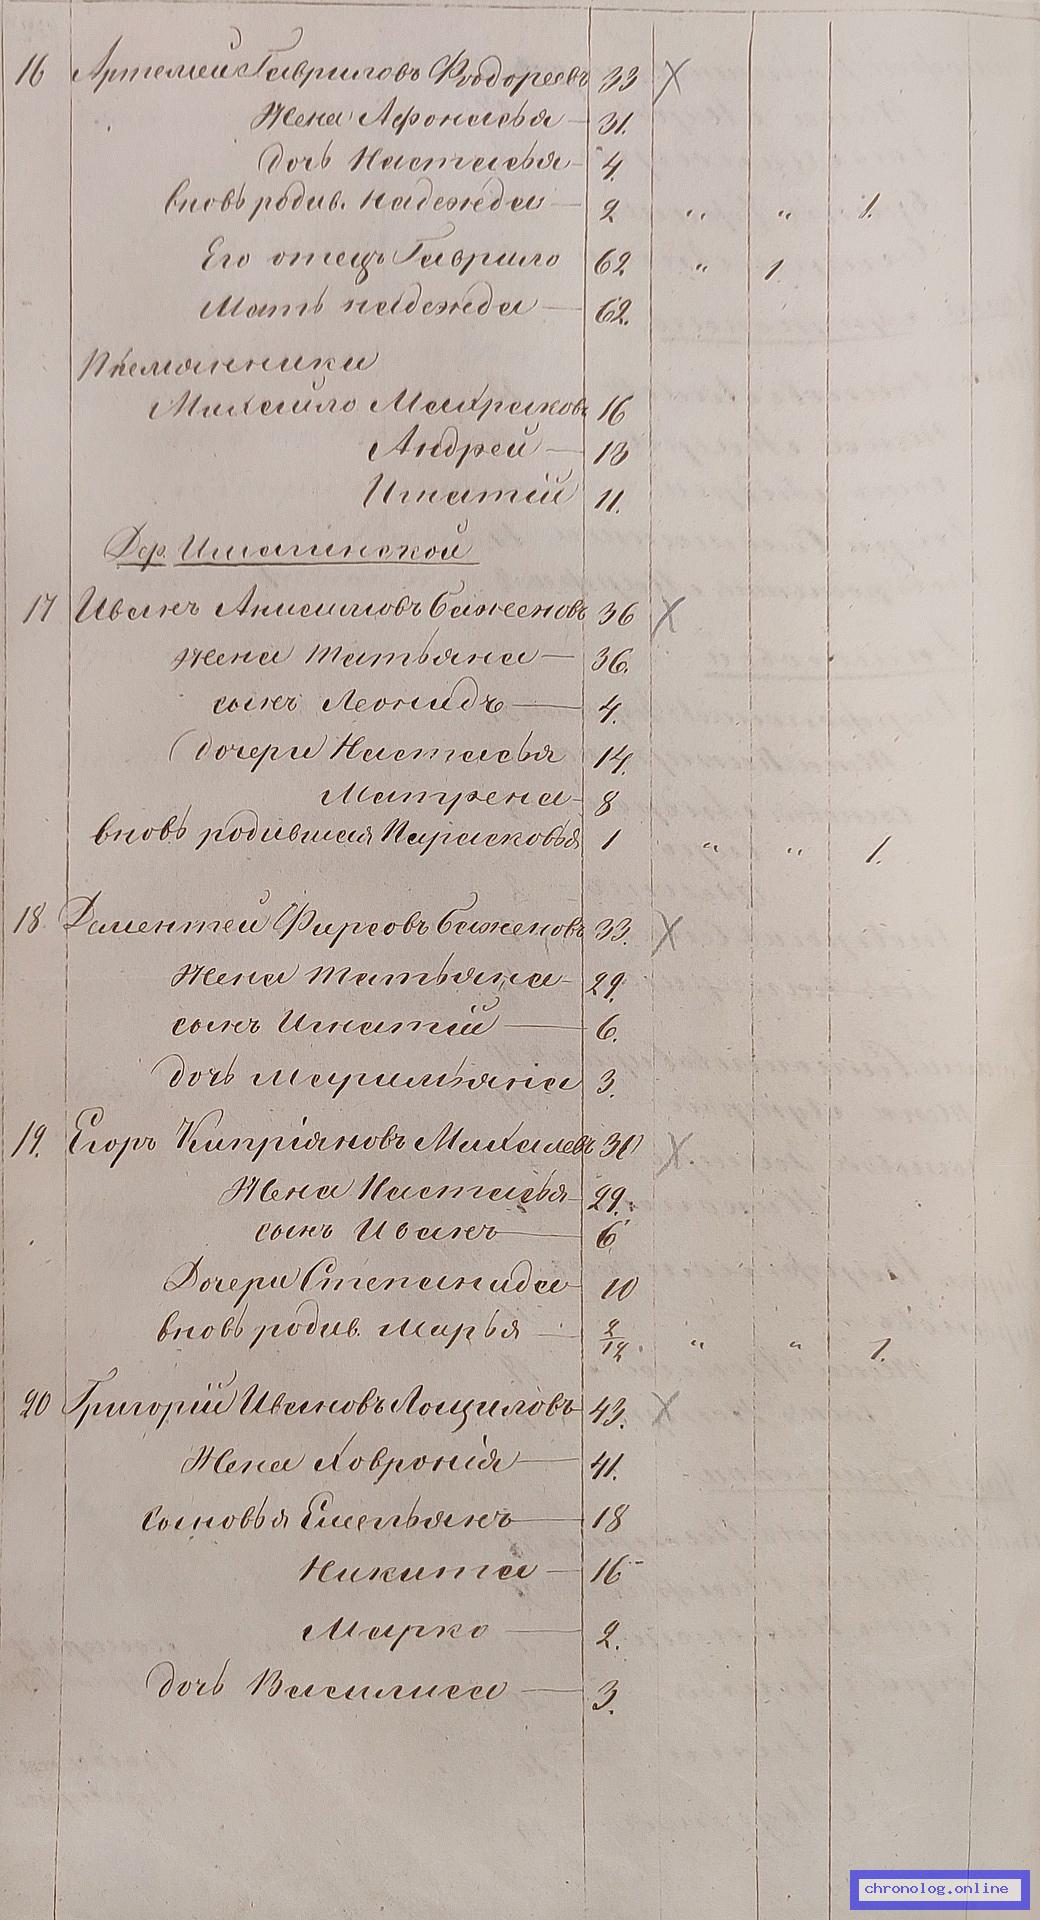 16 Артемей Гавриловъ Фодореевъ 33 X
Жена Афонасья — 31.
дочь Настасья - 4.
вновь родив. Надежда — 2 " " 1.
Его отецъ Гаврило 62 " 1
Мать надежда — 62.
Племянники
Михайло 16
Андрей — 13
Игнатій 11.
Дер.
17 Иванъ Анисимовъ Баженовъ 36 X
Жена Татьяна — 36.
сынъ Леонидъ — 4.
дочери Настасья 14.
Матрена - 8
вновь родившая Парасковья 1 " " 1.
18. Дементей Фирсовъ Баженовъ 33. X
Жена Татьяна - 29.
сынъ Игнатій — 6.
дочь Маримьяна 3.
19. Егоръ Кипріяновъ Михалевъ 30 X.
Жена Настасья - 29.
сынъ Иванъ — 6
Дочери Степанида 10
вновь родив. Марья — 2/12. " " 1.
20 Григорій Ивановъ Лощиловъ 43. X
Жена Ховронія — 41.
Сыновья Емельянъ — 18
Никита — 16
Марко — 2.
дочь Василиса — 3.
chronolog.online